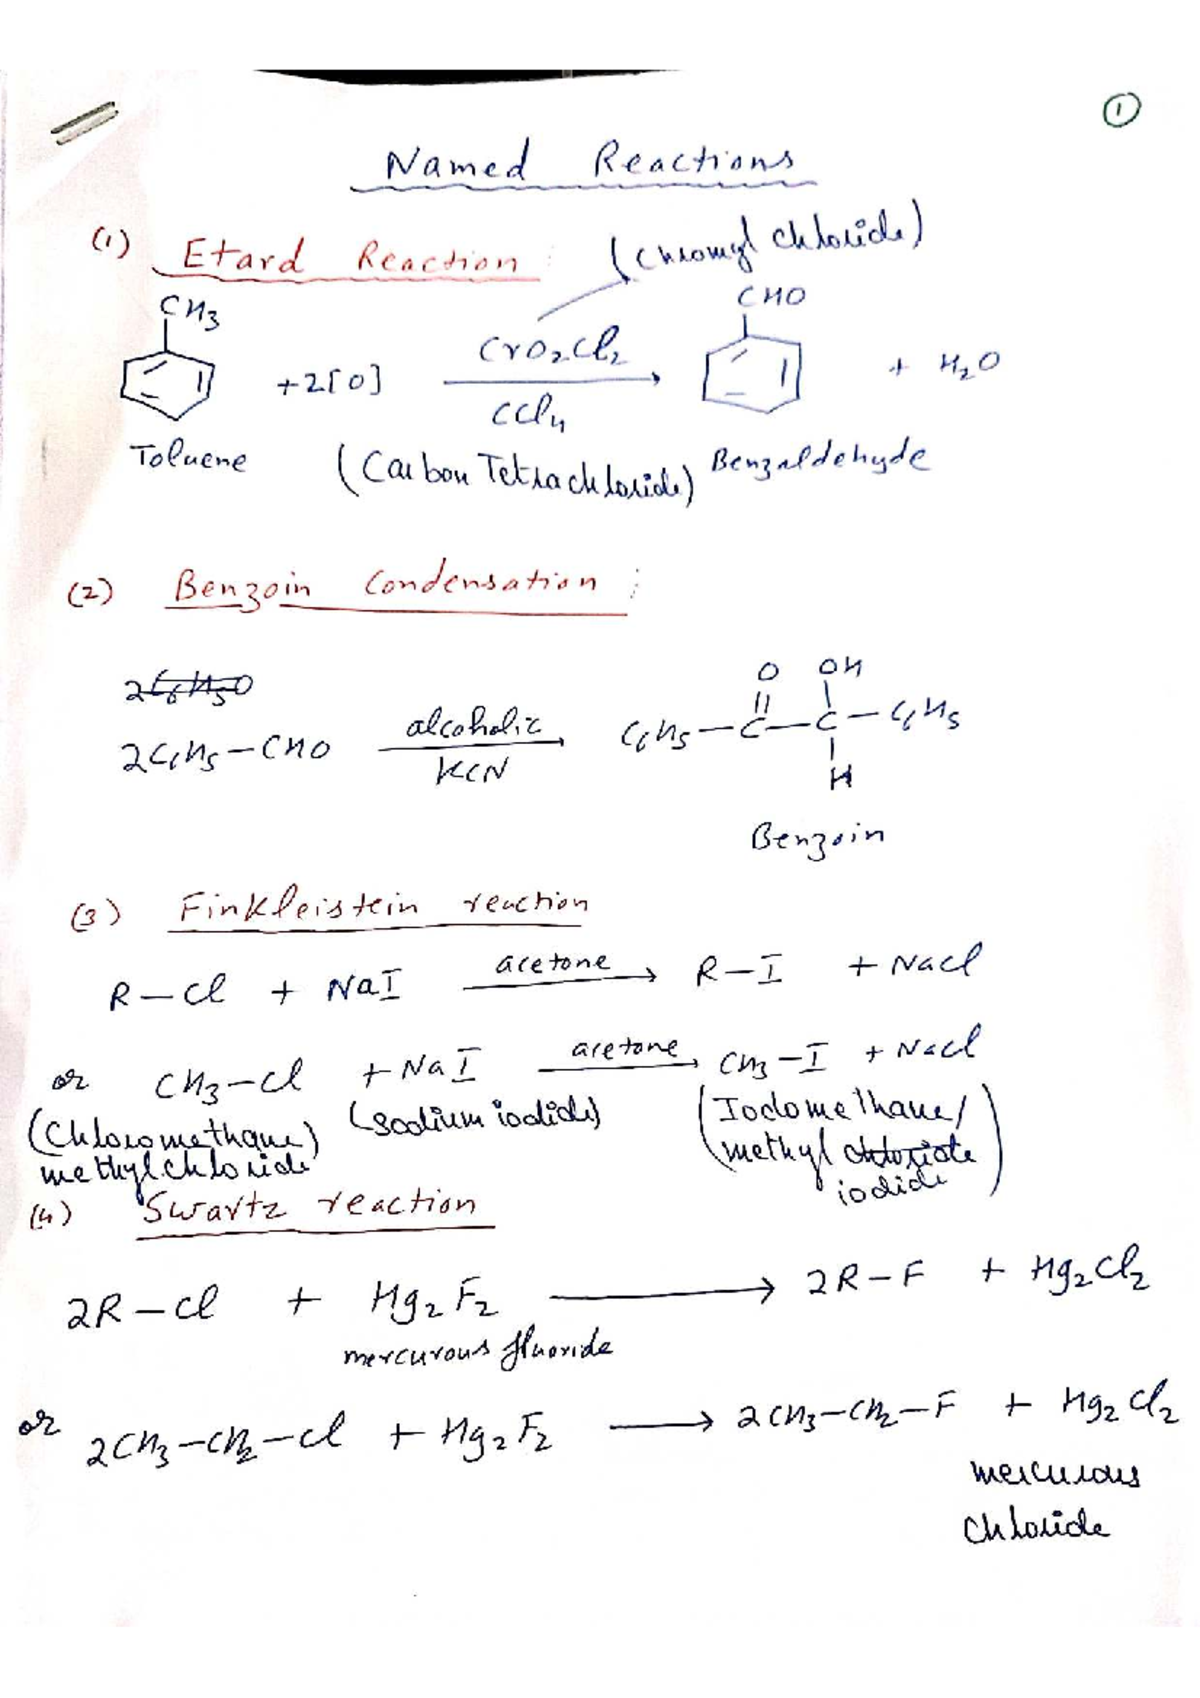 ①
Named Reactions
(1) Etard Reaction : (Chromyl Chloride)
CH3 CrO2Cl2 CHO
+2[O] → + H2O
CCl4
Toluene (Carbon Tetrachloride) Benzaldehyde
(2) Benzoin Condensation :
2C6H5O
O OH
2C6H5-CHO alcoholic KCN → C6H5-C-C-C6H5
H
Benzoin
(3) Finkleistein reaction
R-Cl + NaI acetone → R-I + NaCl
or CH3-Cl + NaI acetone → CH3-I + NaCl
(Chloromethane) (Sodium iodide) (Iodomethane/
methylchloride methyl chloride
iodide)
(4) Swartz reaction
2R-Cl + Hg2F2 → 2R-F + Hg2Cl2
mercurous fluoride
or 2CH3-CH2-Cl + Hg2F2 → 2CH3-CH2-F + Hg2Cl2
mercurous
chloride